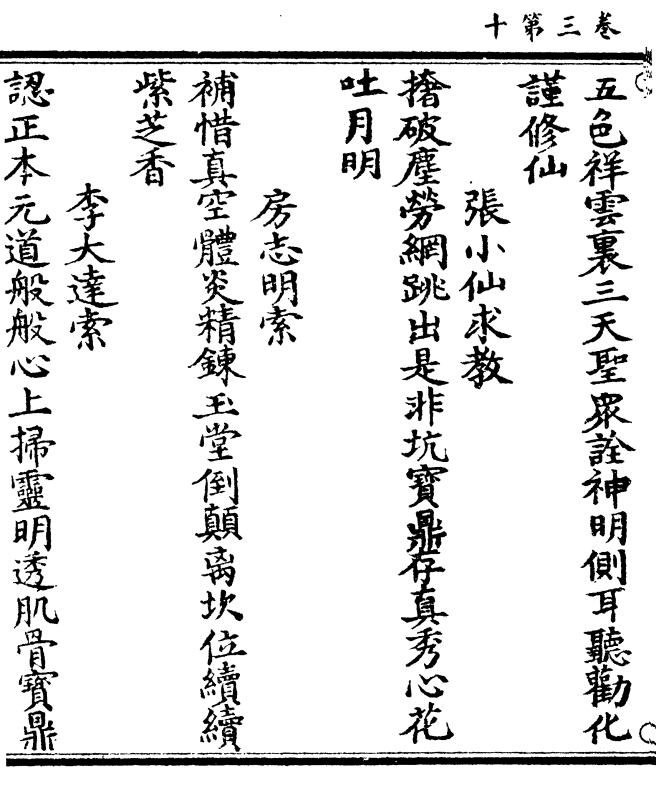 卷三第十
五色祥雲裏三天聖眾詮神明側耳聽勸化
謹修仙
張小仙求教
撦破塵勞網跳出是非坑寶鼎存真秀心花
吐月明
房志明索
補惜真空體炎精鍊玉堂倒顛离坎位續續
紫芝香
李大達索
認正本元道般般心上掃靈明透肌骨寶鼎